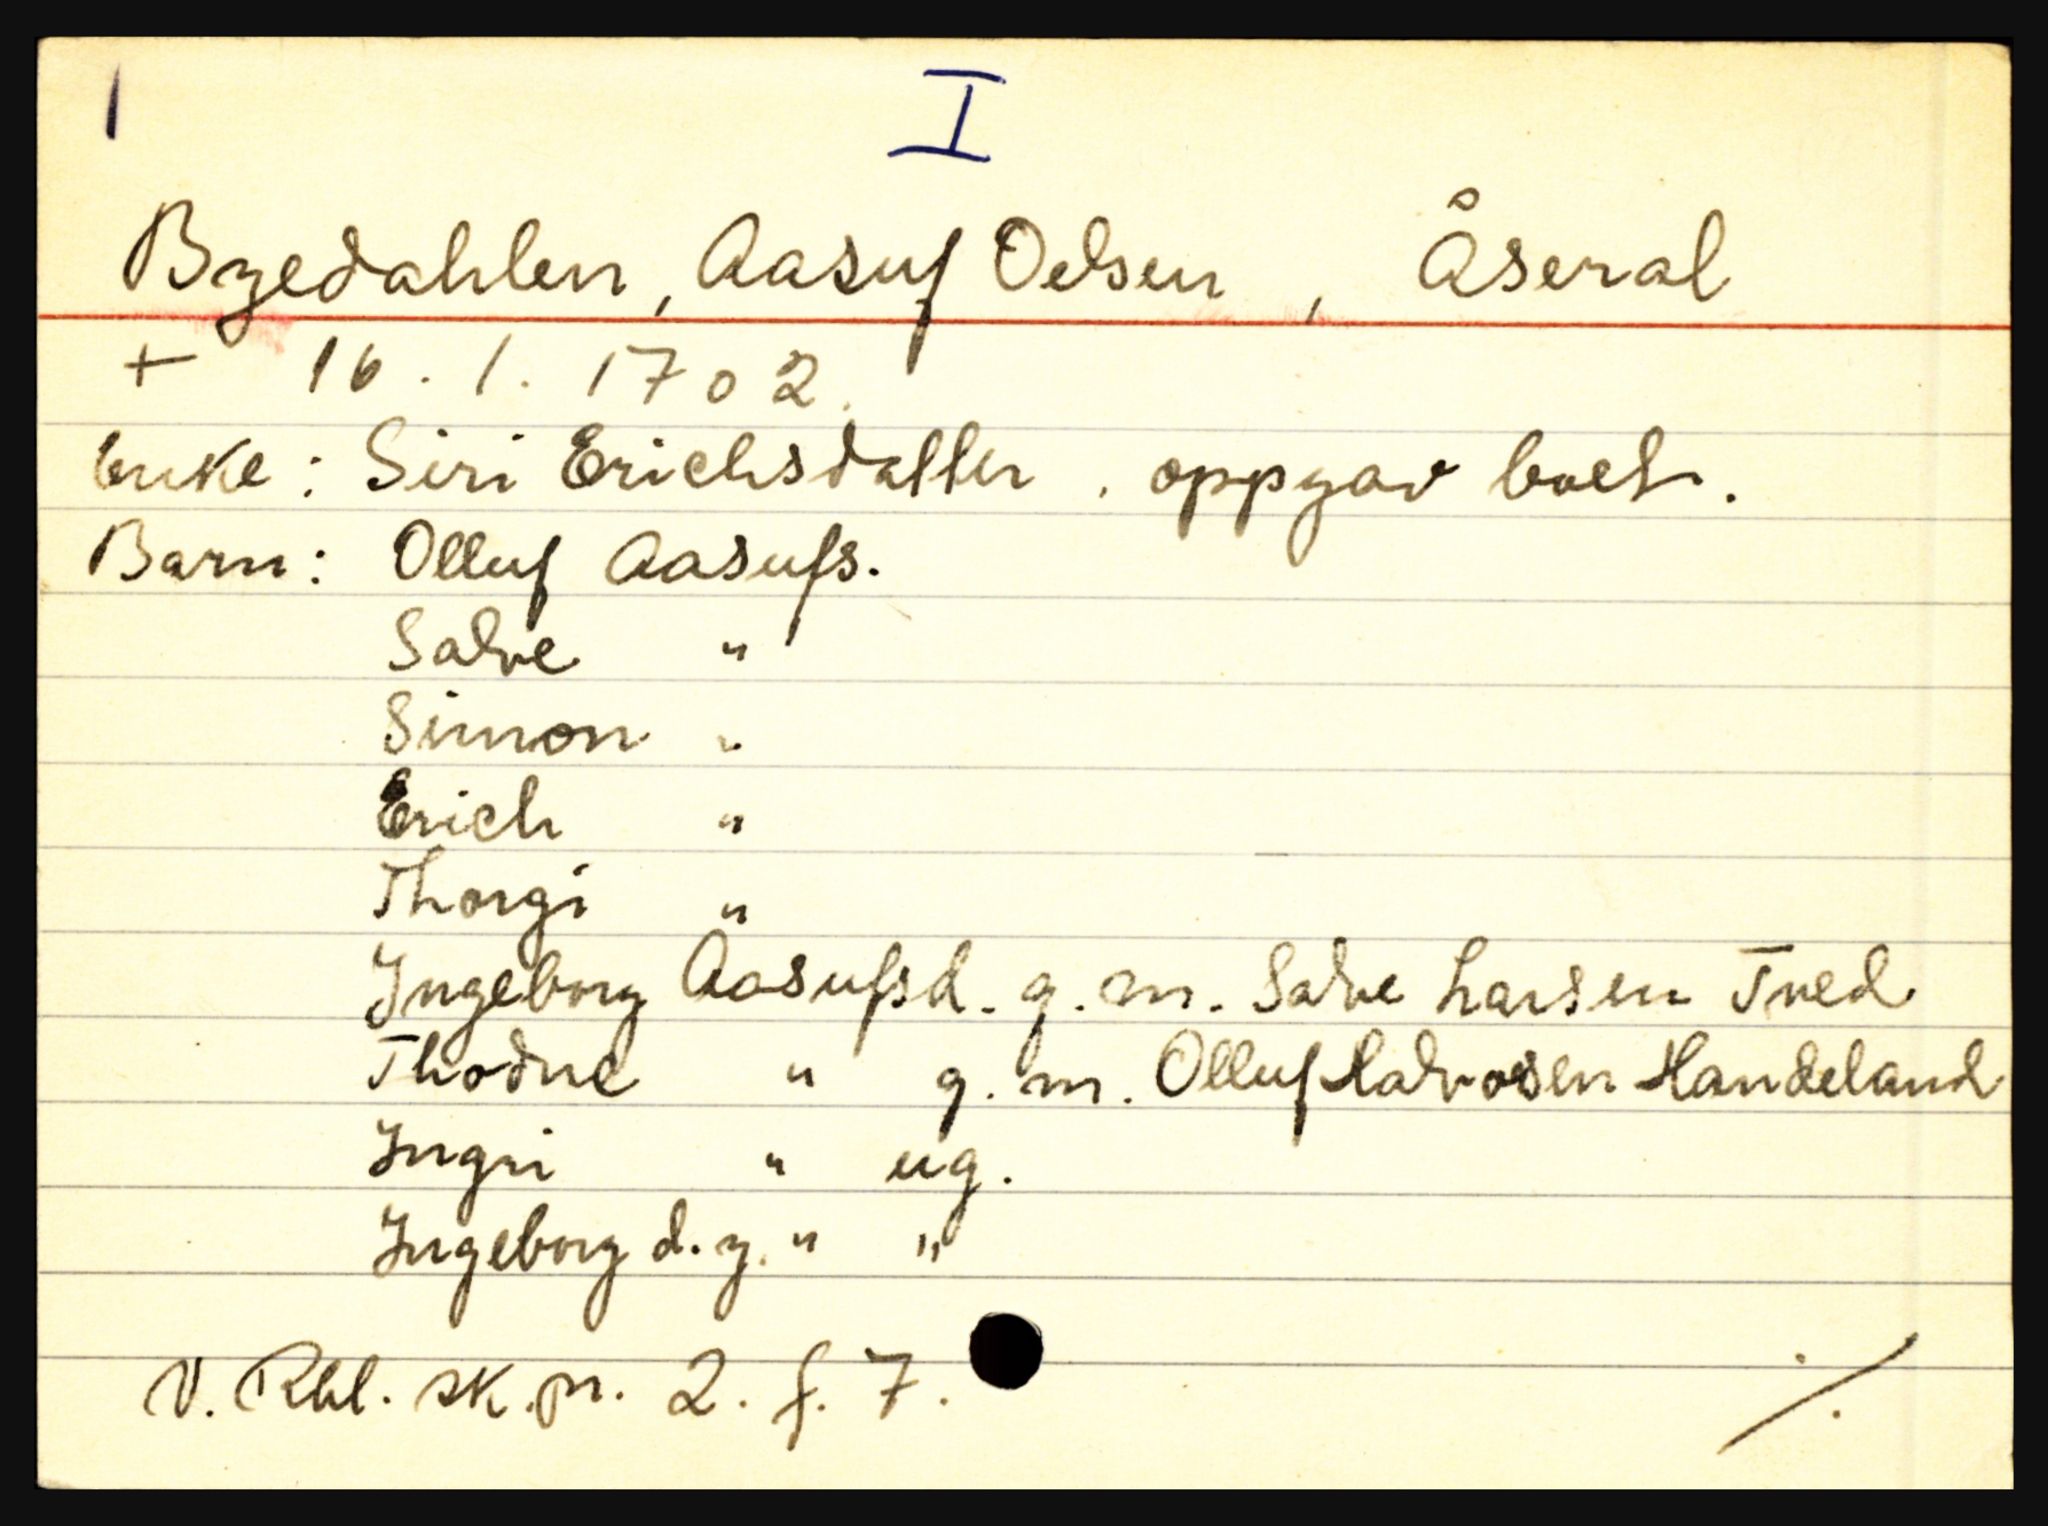 1
I
Bygdahlen, Aasuf Oelsen, Åseral
+ 16. 1. 1702.
Enke: Siri Erichsdatter, oppgav boet.
Barn: Olluf Aasufs.
Salve "
Simon "
Erich "
Thorgi "
Ingeborg Aasufsd. g. m. Salve Larsen Tved
Thodne " g. m. Olluf Halvorsen Handeland
Ingri " ug.
Ingeborg d. y. " "
V. Rbl. sk. pr. 2. f. 7.
./.